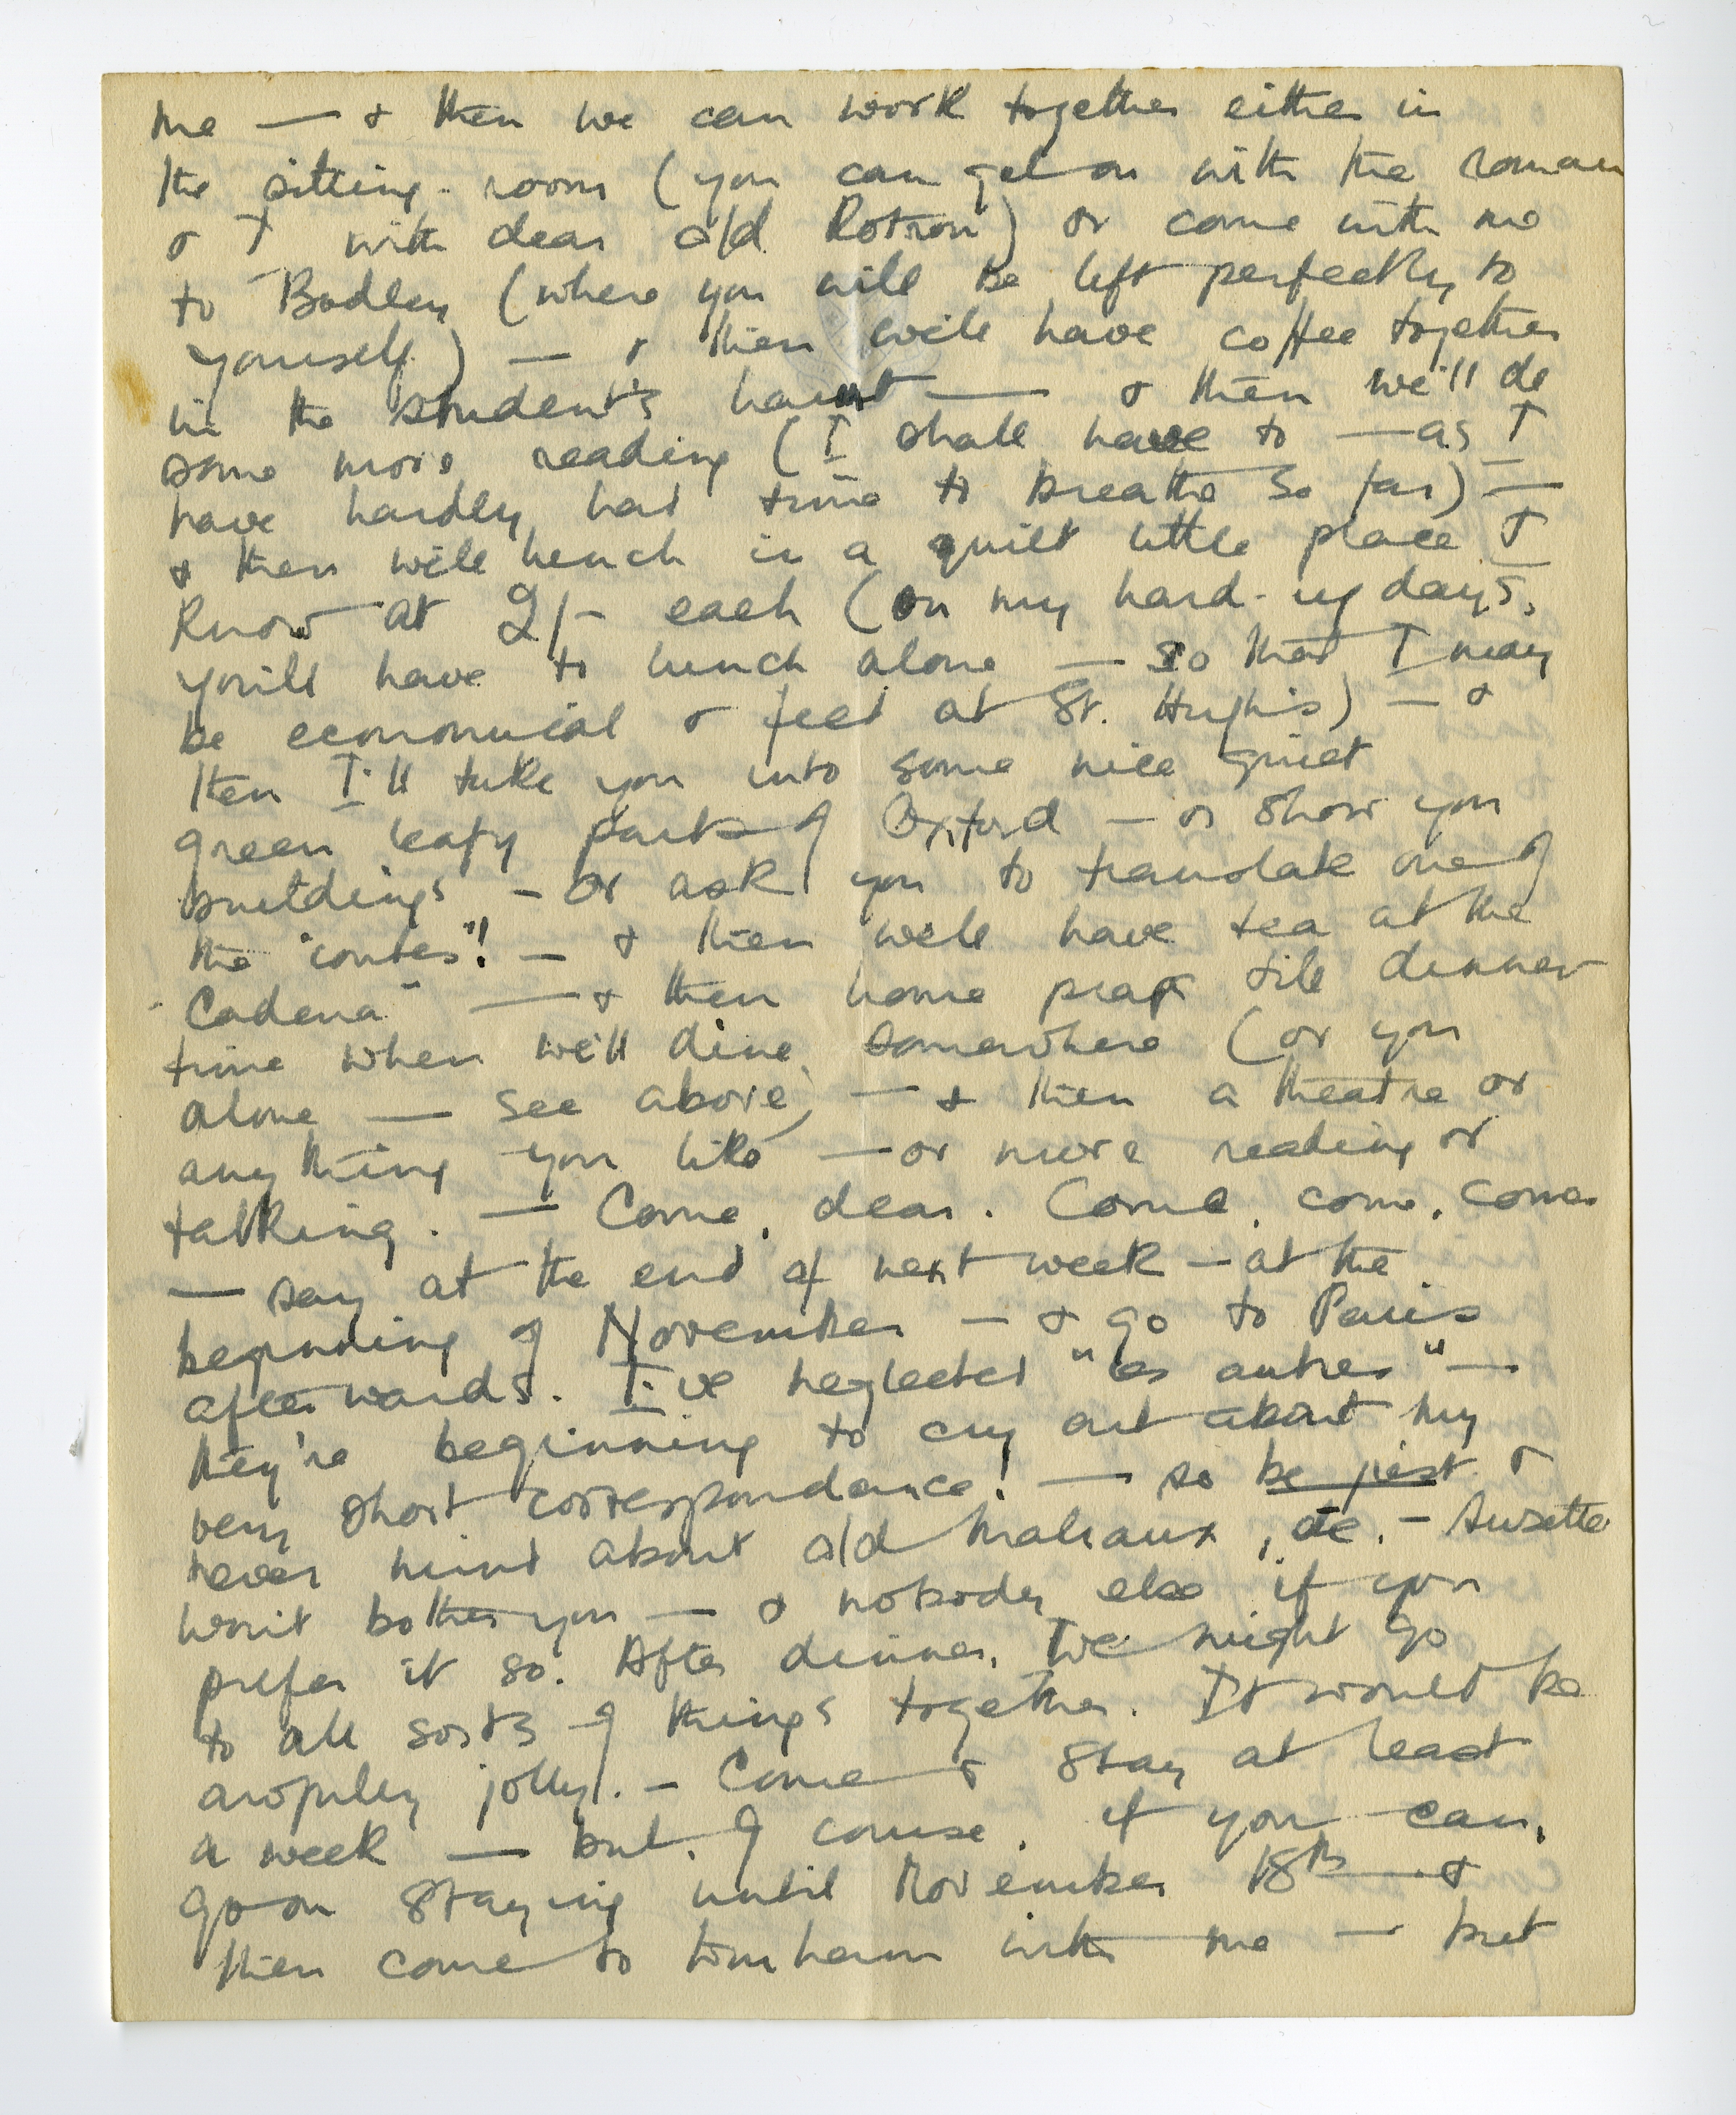 me — & then we can work together either in
the sitting-room (you can get on with the roman
& I with dear old Rotrou) or come with me
to Bodley (where you will be left perfectly to
yourself) — & then we'll have coffee together
in the student's haunt — & then we'll do
some more reading (I shall have to — as I
have hardly had time to breathe so far) —
& then we'll lunch in a quiet little place I
know at 2/- each (on my hard-up days,
you'll have to lunch alone — so that I may
be economical & feed at St. Hugh's) — &
then I'll take you into some nice quiet
green leafy parts of Oxford — or show you
buildings — or ask you to translate one of
the "contes"! — & then we'll have tea at the
"Cadena" — & then home till dinner
time when we'll dine somewhere (or you
alone — see above) — & then a theatre or
anything you like — or more reading or
talking. — Come, dear. Come, come, come
— say at the end of next week — at the
beginning of November — & go to Paris
afterwards. I've neglected "les autres" —
they're beginning to cry out about my
very short correspondance! — so be just &
never mind about old Malraux, etc. — Suzette
won't bother you — & nobody else if you
prefer it so. After dinner, we might go
to all sorts of things together. It would be
awfully jolly. — Come & stay at least
a week — but, of course, if you can,
go on staying until November 18th &
then come to with me — but